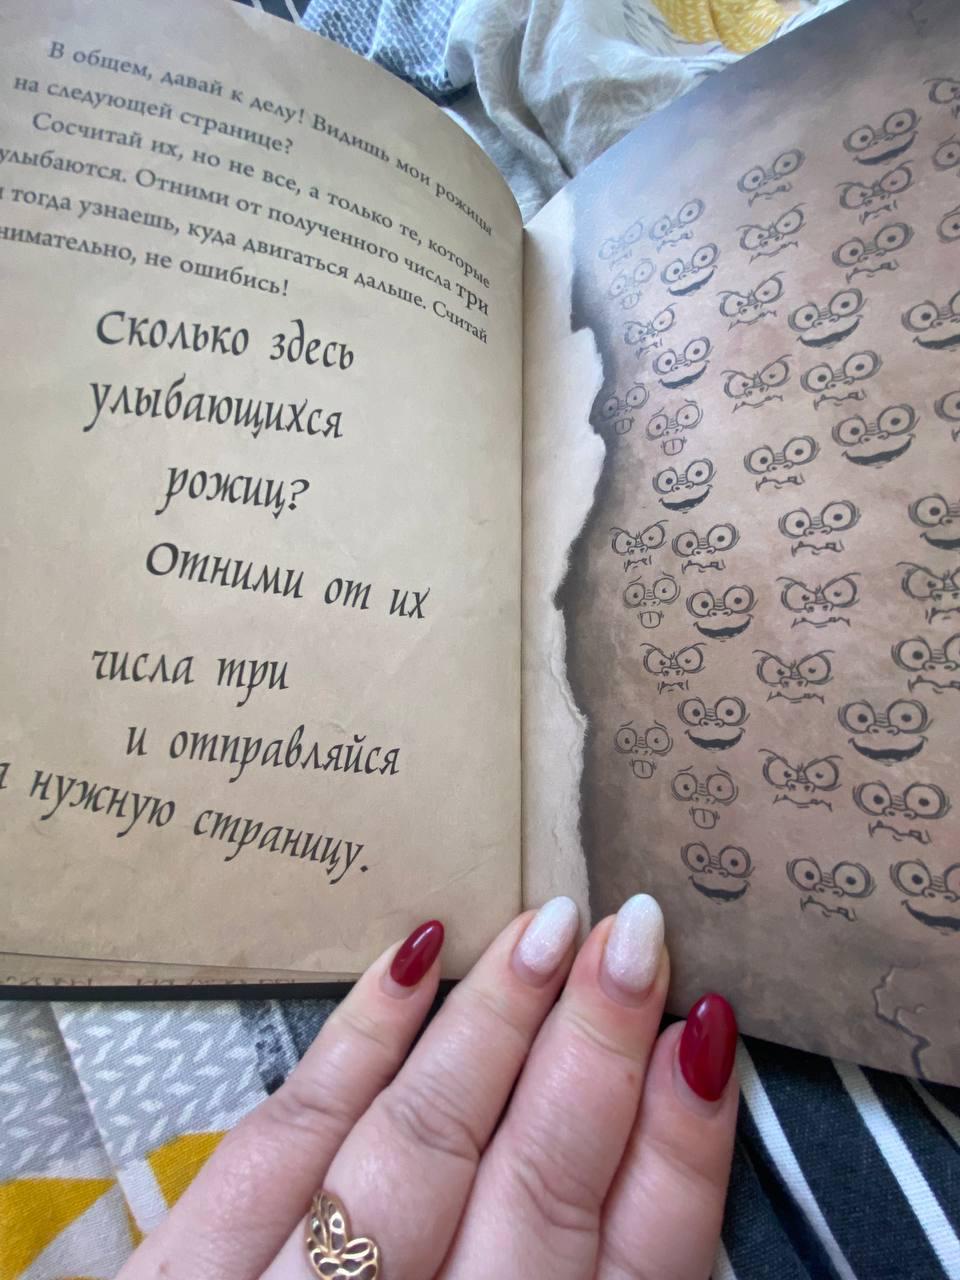 В общем, давай к делу! Видишь мои рожицы
на следующей странице?
Сосчитай их, но не все, а только те, которые
улыбаются. Отними от полученного числа три
тогда узнаешь, куда двигаться дальше. Считай
внимательно, не ошибись!
Сколько здесь
улыбающихся
рожиц?
Отними от их
числа три
и отправляйся
нужную страницу.